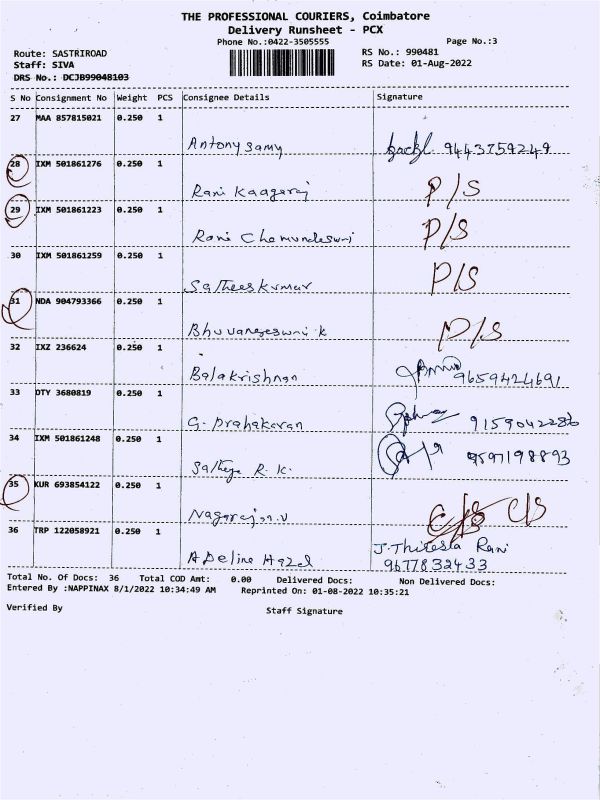 THE PROFESSIONAL COURIERS, Coimbatore
Delivery Runsheet - PCX
Phone No.:0422-3505555 Page No.:3
Route: SASTRIROAD RS No.: 990481
Staff: SIVA RS Date: 01-Aug-2022
DRS No.: DCJB99048103
S No Consignment No Weight PCS Consignee Details Signature
27 MAA 857815021 0.250 1
Antony samy 9443759249
28 IXM 501861276 0.250 1
Rani Kaagaraj P/S
29 IXM 501861223 0.250 1
Rani Chamundeswari P/S
30 IXM 501861259 0.250 1
Satheeskumar P/S
31 NDA 904793366 0.250 1
Bhuvaneseswari k P/S
32 IXZ 236624 0.250 1
Balakrishnan 9659424691
33 OTY 3680819 0.250 1
G. prahakaran 9159042286
34 IXM 501861248 0.250 1
R. K. 9597198893
35 KUR 693854122 0.250 1
Nagarajan.v C/S C/S
36 TRP 122058921 0.250 1
Adeline Hazel J. Thiresla Rani
9677832433
Total No. Of Docs: 36 Total COD Amt: 0.00 Delivered Docs: Non Delivered Docs:
Entered By :NAPPINAX 8/1/2022 10:34:49 AM Reprinted On: 01-08-2022 10:35:21
Verified By Staff Signature